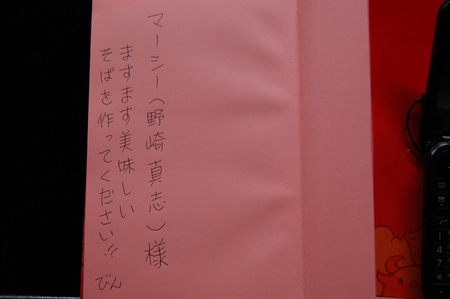 マーシー(野崎真志)様
ますます美味しい
そばを作ってください!!
びん